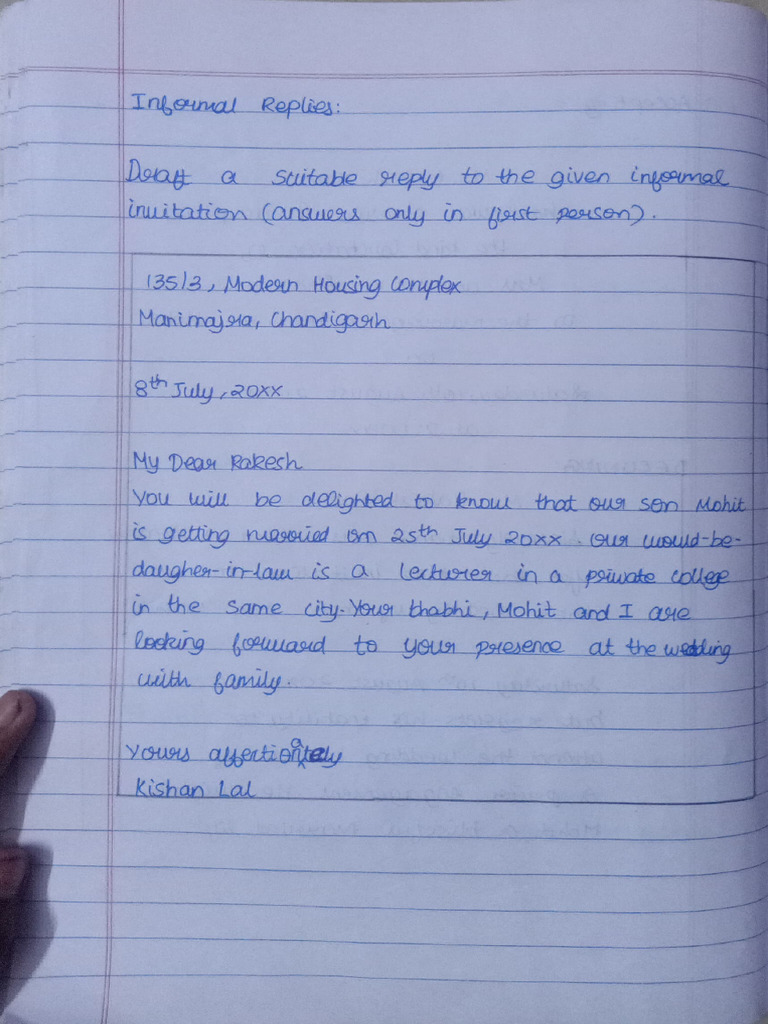 Informal Replies:
Draft a suitable reply to the given informal
invitation (answers only in first person).
135/3, Modern Housing Complex
Manimajra, Chandigarh
8th July, 20XX
My Dear Rakesh
You will be delighted to know that our son Mohit
is getting married on 25th July 20XX. Our would-be-
daugher-in-law is a lecturer in a private college
in the same city. Your bhabhi, Mohit and I are
looking forward to your presence at the wedding
with family.
Yours affectionately
Kishan Lal